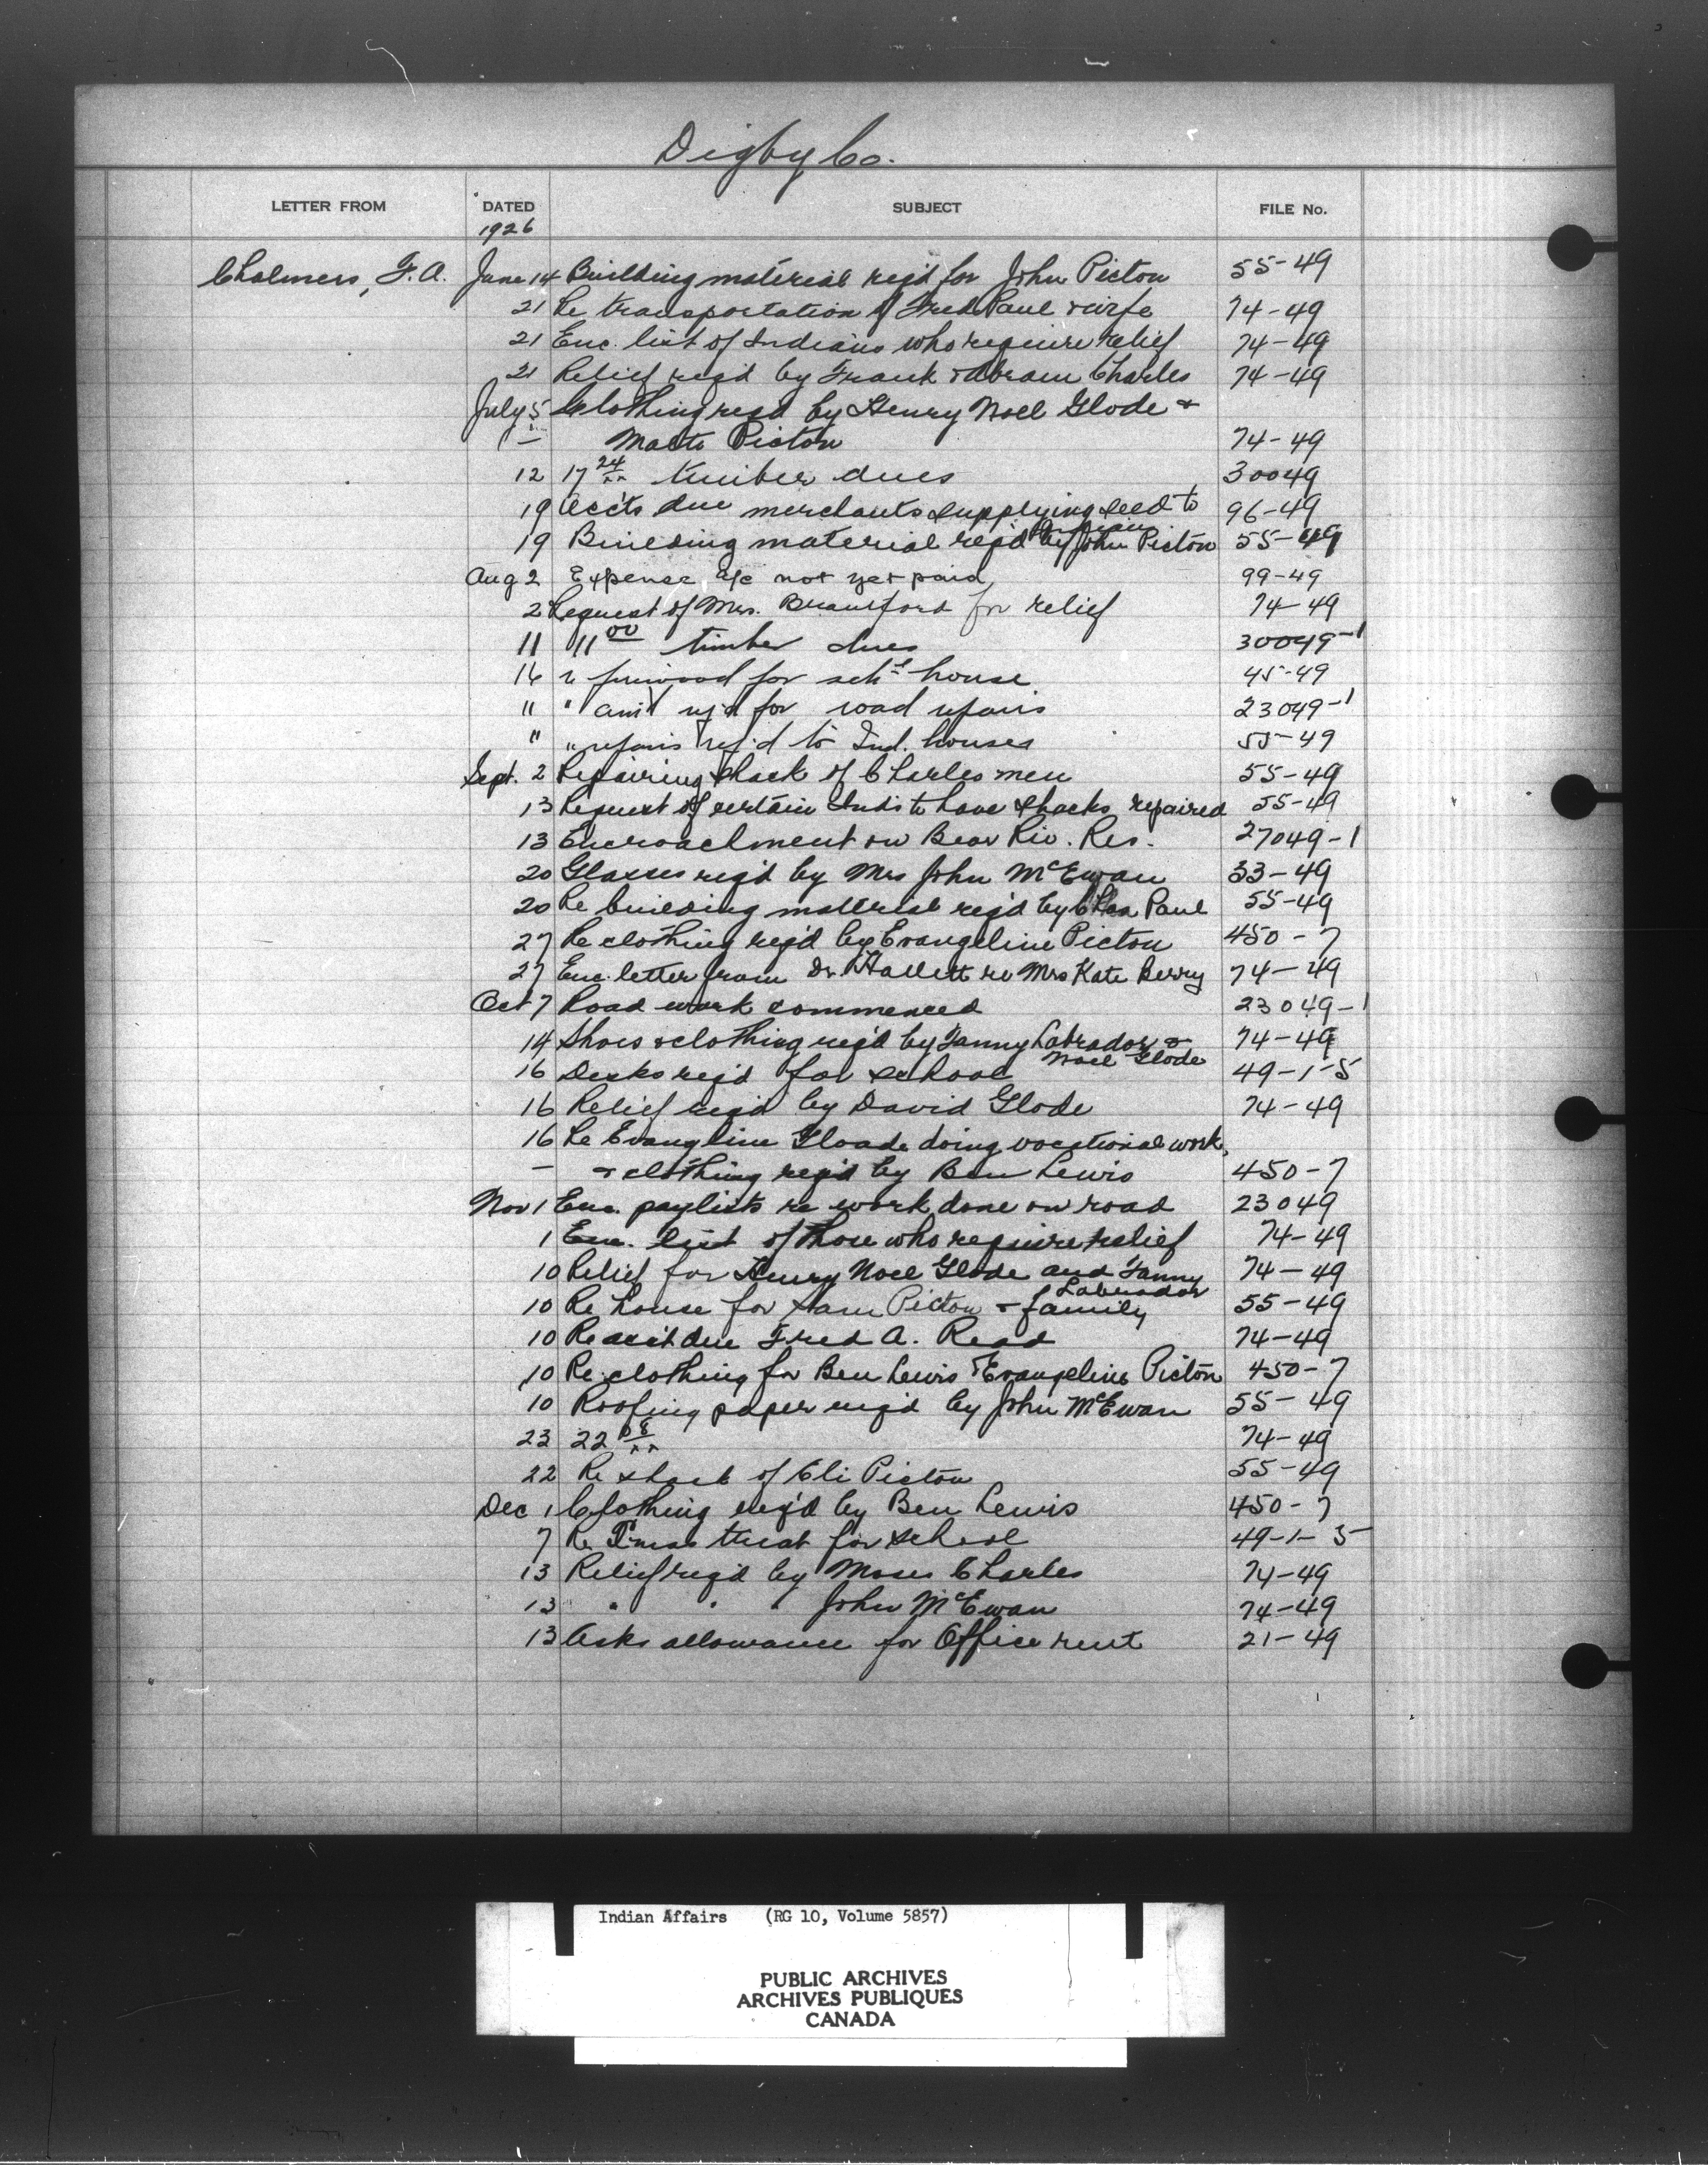 Digby Co.
LETTER FROM DATED SUBJECT FILE No.
1926
Chalmers, F. A. June 14 Building material req'd for John Picton 55-49
21 Re transportation of Fred Paul & wife 74-49
21 Enc. list of Indians who require relief 74-49
21 Relief req'd by Frank & Abram Charles 74-49
July 5 Clothing req'd by Henry Noel Glode &
— Picton 74-49
12 17 24/xx timber dues 30049
19 Acc'ts due merchants supplying seed to 96-49
Indians
19 Building material req'd by John Picton 55-49
Aug 2 Expense a/c not yet paid 99-49
2 Request of Mrs. for relief 74-49
11 11 00 timber dues 30049-1
16 " firewood for sch'l house 45-49
" " am't req'd for road repairs 23049-1
" " repairs req'd to Ind. houses 55-49
Sept. 2 Repairing shack of Charles men 55-49
13 Request of certain Inds to have shacks repaired 55-49
13 Encroachment on Bear Riv. Res. 27049-1
20 Glasses req'd by Mrs John McEwan 33-49
20 Re building material req'd by Chas Paul 55-49
27 Re clothing req'd by Evangeline Picton 450-7
27 Enc. letter from Dr. Hallett re Mrs Kate Berry 74-49
Oct 7 Road work commenced 23049-1
14 Shoes & clothing req'd by Fanny Labrador & 74-49
Noel Glode
16 Desks req'd for school 49-1-5
16 Relief req'd by David Glode 74-49
16 Re Evangline Gloade doing vocational work,
— & clothing req'd by Ben Lewis 450-7
Nov 1 Enc. paylists re work done on road 23049
1 Enc. list of those who require relief 74-49
10 Relief for Henry Noel Glode and Fanny 74-49
Labrador
10 Re house for Sam Picton & family 55-49
10 Re acc't due Fred A. Read 74-49
10 Re clothing for Ben Lewis & Evangeline Picton 450-7
10 Roofing paper req'd by John McEwan 55-49
23 22 08/xx 74-49
22 Re shack of Eli Picton 55-49
Dec 1 Clothing req'd by Ben Lewis 450-7
7 Re Xmas treat for school 49-1-5
13 Relief req'd by Moses Charles 74-49
13 " " " John McEwan 74-49
13 Asks allowance for Office rent 21-49
Indian Affairs (RG 10, Volume 5857)
PUBLIC ARCHIVES
ARCHIVES PUBLIQUES
CANADA